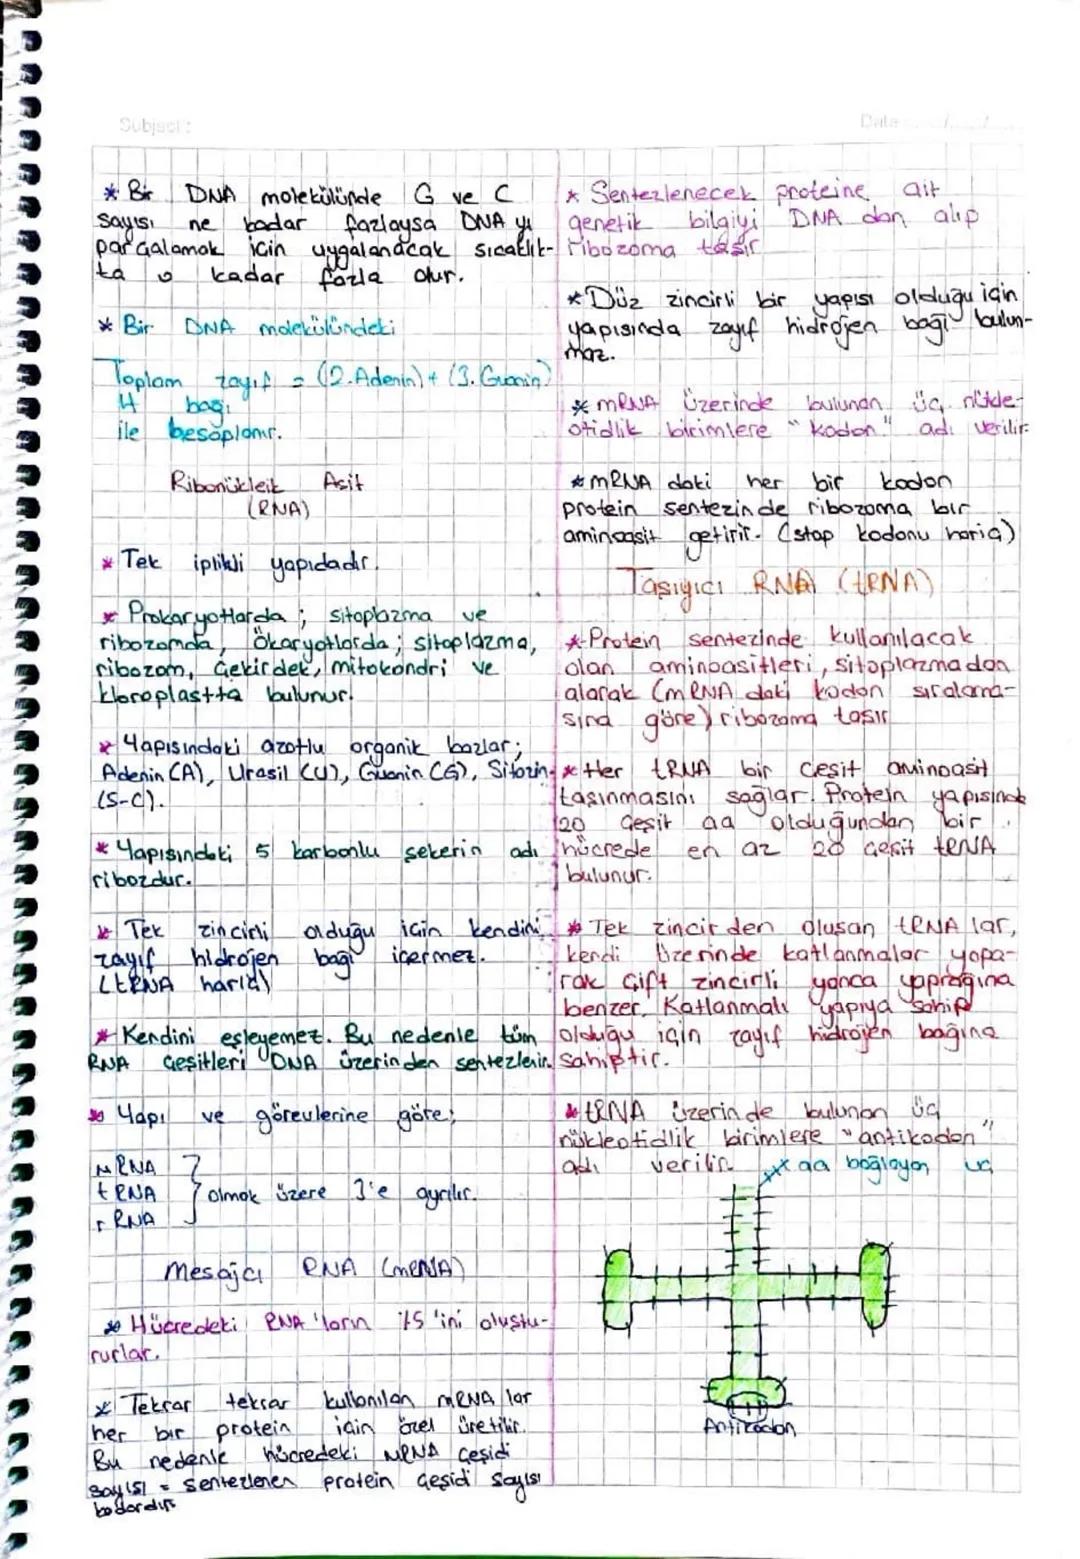 Subject:
Date
* Bir DNA molekülünde G ve C
sayısı ne kadar fazlaysa DNA yı
parçalamak için uygulanacak sıcaklık-
ta o kadar fazla olur.
* Bir DNA molekülündeki
Toplam zayıf = (2.Adenin) + (3.Guanin)
H bağı
ile hesaplanır.
Ribonükleik Asit
(RNA)
* Tek iplikli yapıdadır.
* Prokaryotlarda ; sitoplazma ve
ribozomda, Ökaryotlarda ; sitoplazma,
ribozom, çekirdek, mitokondri ve
kloroplastta bulunur.
* Yapısındaki azotlu organik bazlar;
Adenin (A), Urasil (U), Guanin (G), Sitozin
(S-C).
* Yapısındaki 5 karbonlu şekerin adı
ribozdur.
* Tek zincirli olduğu için kendini
zayıf hidrojen bağı içermez.
(tRNA hariç)
* Kendini eşleyemez. Bu nedenle tüm
RNA çeşitleri DNA üzerinden sentezlenir.
* Yapı ve görevlerine göre;
mRNA
tRNA olmak üzere 3'e ayrılır.
rRNA
Mesajcı RNA (mRNA)
* Hücredeki RNA'ların %5'ini oluştu-
rurlar.
* Tekrar tekrar kullanılan mRNA lar
her bir protein için özel üretilir.
Bu nedenle hücredeki mRNA çeşidi
sayısı = sentezlenen protein çeşidi sayısı
kadardır
* Sentezlenecek proteine ait
genetik bilgiyi DNA dan alıp
ribozoma taşır
* Düz zincirli bir yapısı olduğu için
yapısında zayıf hidrojen bağı bulun-
maz.
* mRNA üzerinde bulunan üç nükle-
otidlik birimlere "kodon" adı verilir
* mRNA daki her bir kodon
protein sentezinde ribozoma bir
aminoasit getirir. (stop kodonu hariç)
Taşıyıcı RNA (tRNA)
* Protein sentezinde kullanılacak
olan aminoasitleri, sitoplazmadan
alarak (mRNA daki kodon sıralama-
sına göre) ribozoma taşır
* Her tRNA bir çeşit aminoasit
taşınmasını sağlar. Protein yapısında
20 çeşit aa olduğundan bir
hücrede en az 20 çeşit tRNA
bulunur.
* Tek zincirden oluşan tRNA lar,
kendi üzerinde katlanmalar yapa-
rak çift zincirli yonca yaprağına
benzer. Katlanmalı yapıya sahip
olduğu için zayıf hidrojen bağına
sahiptir.
* tRNA üzerinde bulunan üç
nükleotidlik birimlere "antikodon"
adı verilir
aa bağlayan uç
Antikodon